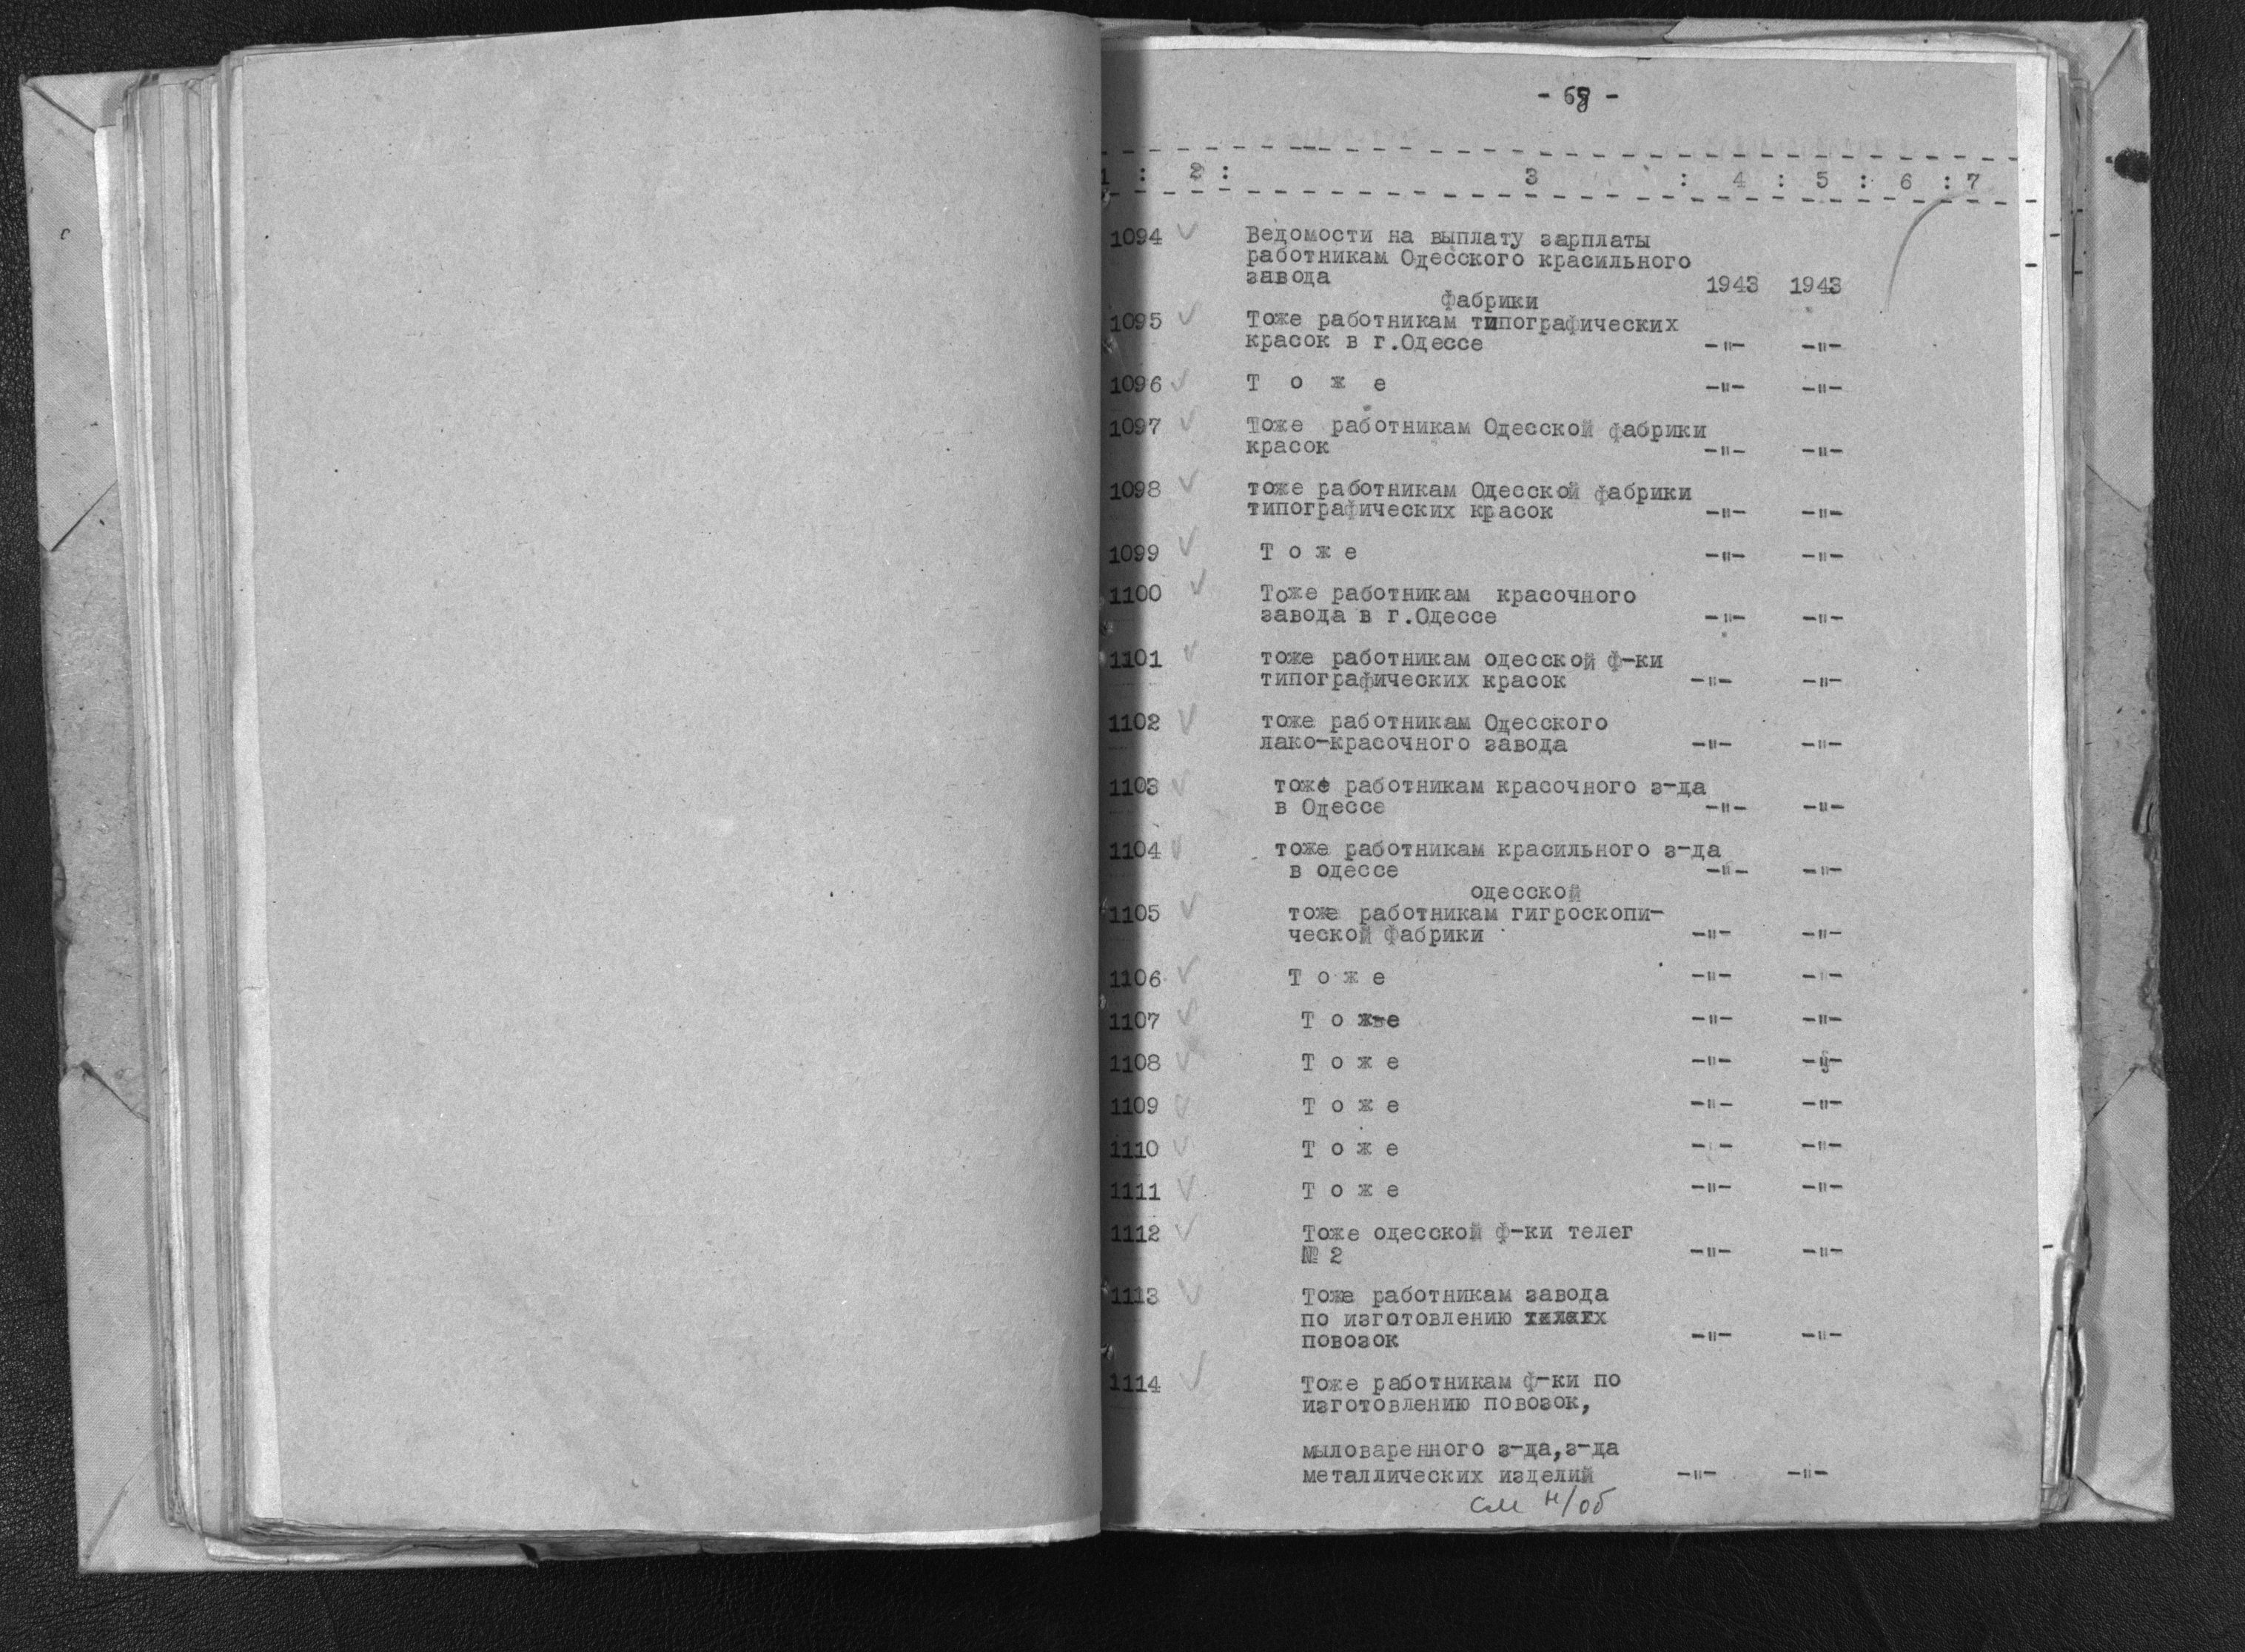 - 68 -
1 : 2 : 3 : 4 : 5 : 6 : 7
1094 Ведомости на выплату зарплаты
работникам Одесского красильного
завода 1943 1943
фабрики
1095 Тоже работникам типографических
красок в г.Одессе -"- -"-
1096 Т о ж е -"- -"-
1097 Тоже работникам Одесской фабрики
красок -"- -"-
1098 тоже работникам Одесской фабрики
типографических красок -"- -"-
1099 Т о ж е -"- -"-
1100 Тоже работникам красочного
завода в г.Одессе -"- -"-
1101 тоже работникам одесской ф-ки
типографических красок -"- -"-
1102 тоже работникам Одесского
лако-красочного завода -"- -"-
1103 тоже работникам красочного з-да
в Одессе -"- -"-
1104 тоже работникам красильного з-да
в одессе -"- -"-
одесской
1105 тоже работникам гигроскопи-
ческой фабрики -"- -"-
1106 Т о ж е -"- -"-
1107 Т о ж е -"- -"-
1108 Т о ж е -"- -"-
1109 Т о ж е -"- -"-
1110 Т о ж е -"- -"-
1111 Т о ж е -"- -"-
1112 Тоже одесской ф-ки телег
№ 2 -"- -"-
1113 Тоже работникам завода
по изготовлению
повозок -"- -"-
1114 Тоже работникам ф-ки по
изготовлению повозок,
мыловаренного з-да,з-да
металлических изделий -"- -"-
см н/об